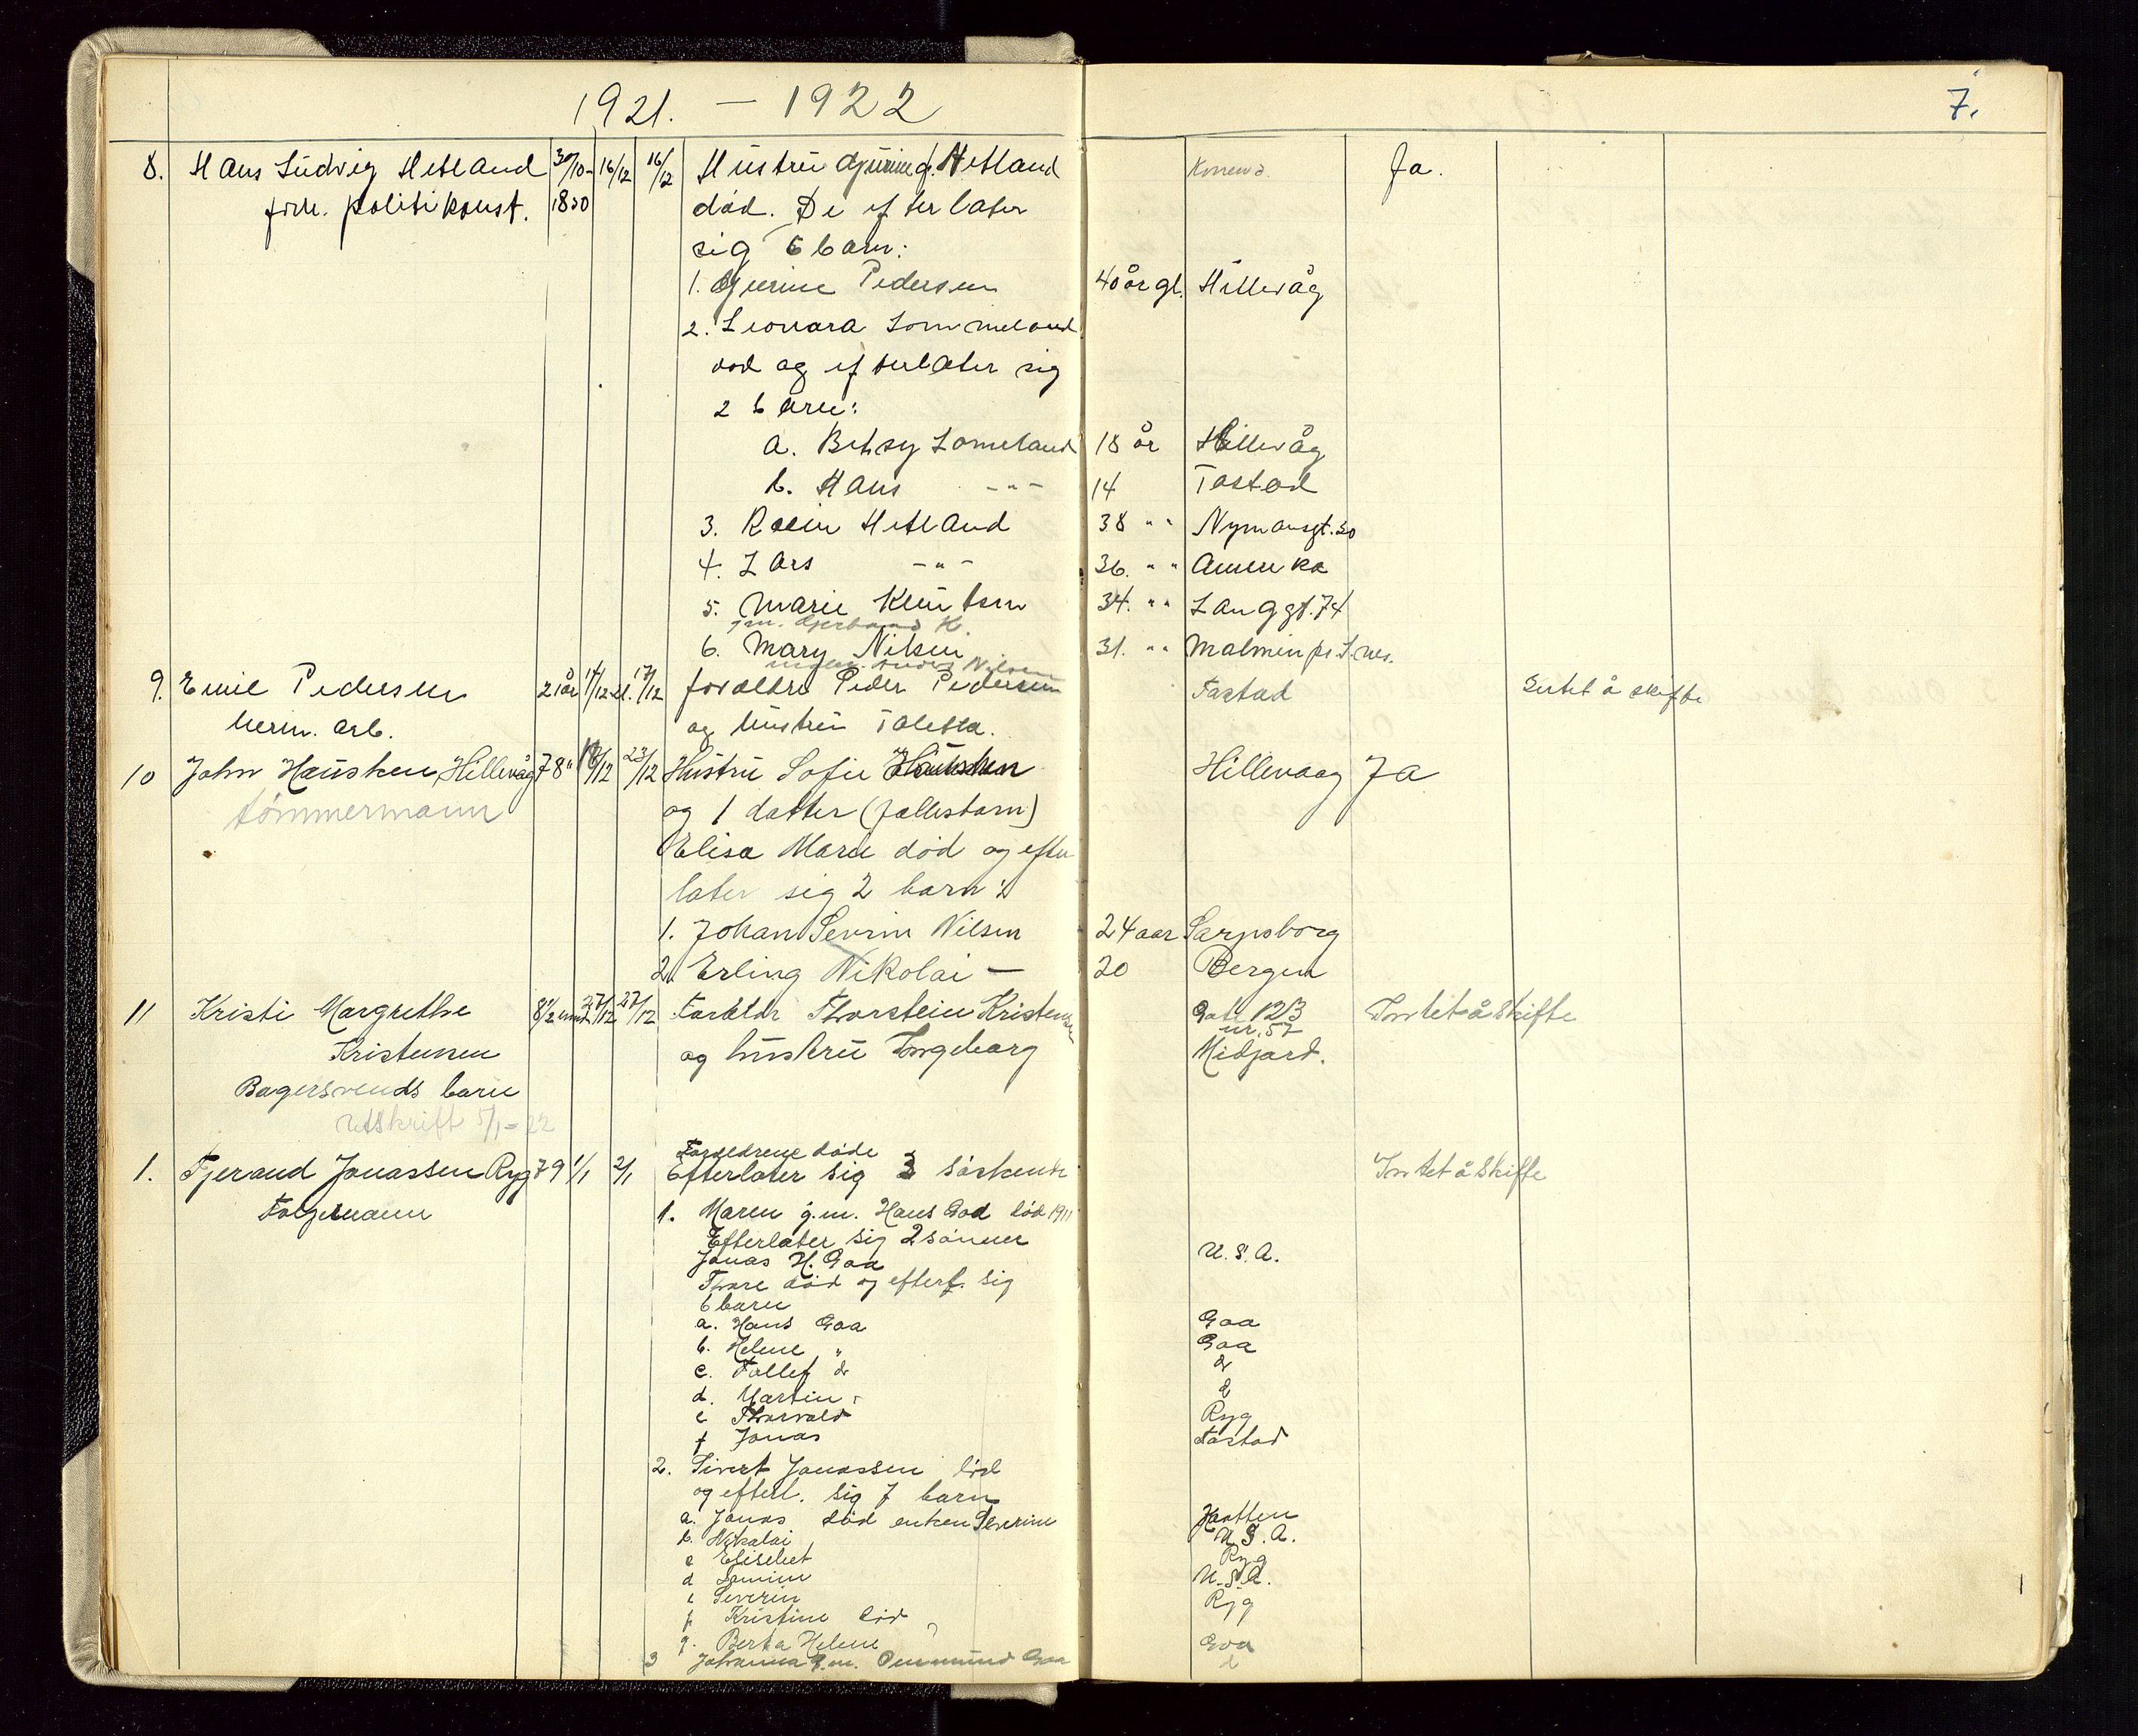 1921. — 1922
7.
8. Hans Ludvig Hetland 30/10- 16/12 16/12 Hustru Gurine f. Hetland Ja.
forh. politikonst. 1850 död. De efterlater
sig 6 barn:
1. Gurine Pedersen 40 år gl. Hillevåg
2. Leonara Lommeland
död og efterlater sig
2 barn:
a. Betsy Lomeland 18 år Hillevåg
b. Hans -"- 14 Tastad
3. Hetland 38 " " Nymansgt. 30
4. Lars -"- 36. " " Amerika
5. Marie Knutsen 34. " " Langgt. 74
gm. K.
6. Mary Nilsen 31. " " Malmin pr.
Nilsen
9. Emil Pedersen 21 år 14/12 17/12 foreldre Peder Pedersen Tastad Intet å skifte
herm. arb. og hustru Taletta.
10 John Hausken, Hillevåg 78" 18/12 23/12 Hustru Sofie Hausken Hillevaag Ja
tömmermann og 1 datter (fellesbarn)
Elisa Marie död og efter
later sig 2 barn:
1. Johan Severin Nilsen 24 aar Sarpsborg
2. Erling Nikolai — 20 Bergen
11 Kristi Margrethe 8 1/2 mnd 27/12 27/12 Foreldr Thorstein Kristensen Gate 123 Intet å skifte
nr. 57
Kristensen og hustru Ingeborg Midjord.
Bagersvends barn
Utskrift 5/1-22
Foreldrene døde
1. Tjerand Jonassen Ryg 79 1/1 2/1 Efterlater sig 3 söskende Intet å skifte
Maren g.m. Hans Goa död 1911
1.
Efterlater sig 2 sönner
Jonas H. Goa U.S.A.
Thore död og efterl. sig
6 barn
a. Hans Goa Goa
b. Helene " Goa
c. Tollef do do
d. Martin " do
e Thorvald Ryg
f Jonas Tastad
2. Sivert Jonassen död
og efterl. sig 7 barn
a. Jonas död enken Severine
b. Nikolai U.S.A.
c Elisebet Ryg
d U.S.A.
e Severin Ryg
f Kristine död
g. Berta Helene Goa
3 Johanna g.m. Ommund Goa do